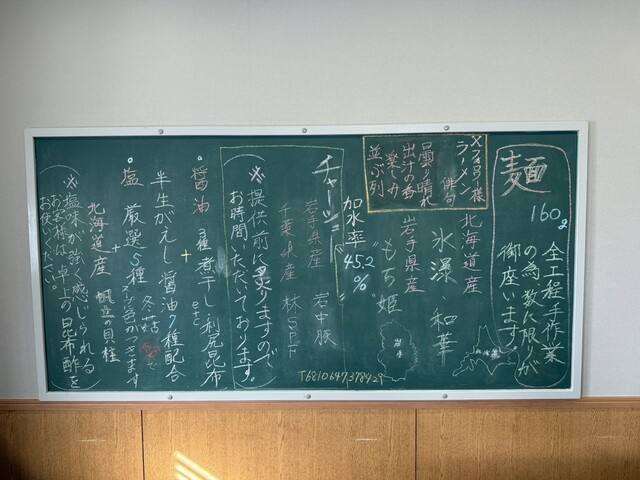 麺
160g
全工程手作業
の為数に限りが
御座います
Xフォロワー様
ラーメン俳句
曇り晴れ
出汁の香
楽しみ
並ぶ列
北海道産
氷瀑、和華
岩手県産
もち姫
加水率
45.2
%
北海道
岩手
チャーシュー
岩手県産 岩中豚
千葉県産 林SPF
(※提供前に炙りますので
お時間いただいております。)
T6810647378429
・醤油 3種煮干し、利尻昆布
etc
+
半生がえし醤油7種配合
・塩 厳選5種 冬菇で
+
北海道産 帆立の貝柱
(※塩味が強く感じられる
お客様は、卓上の昆布酢を
お使いください。)